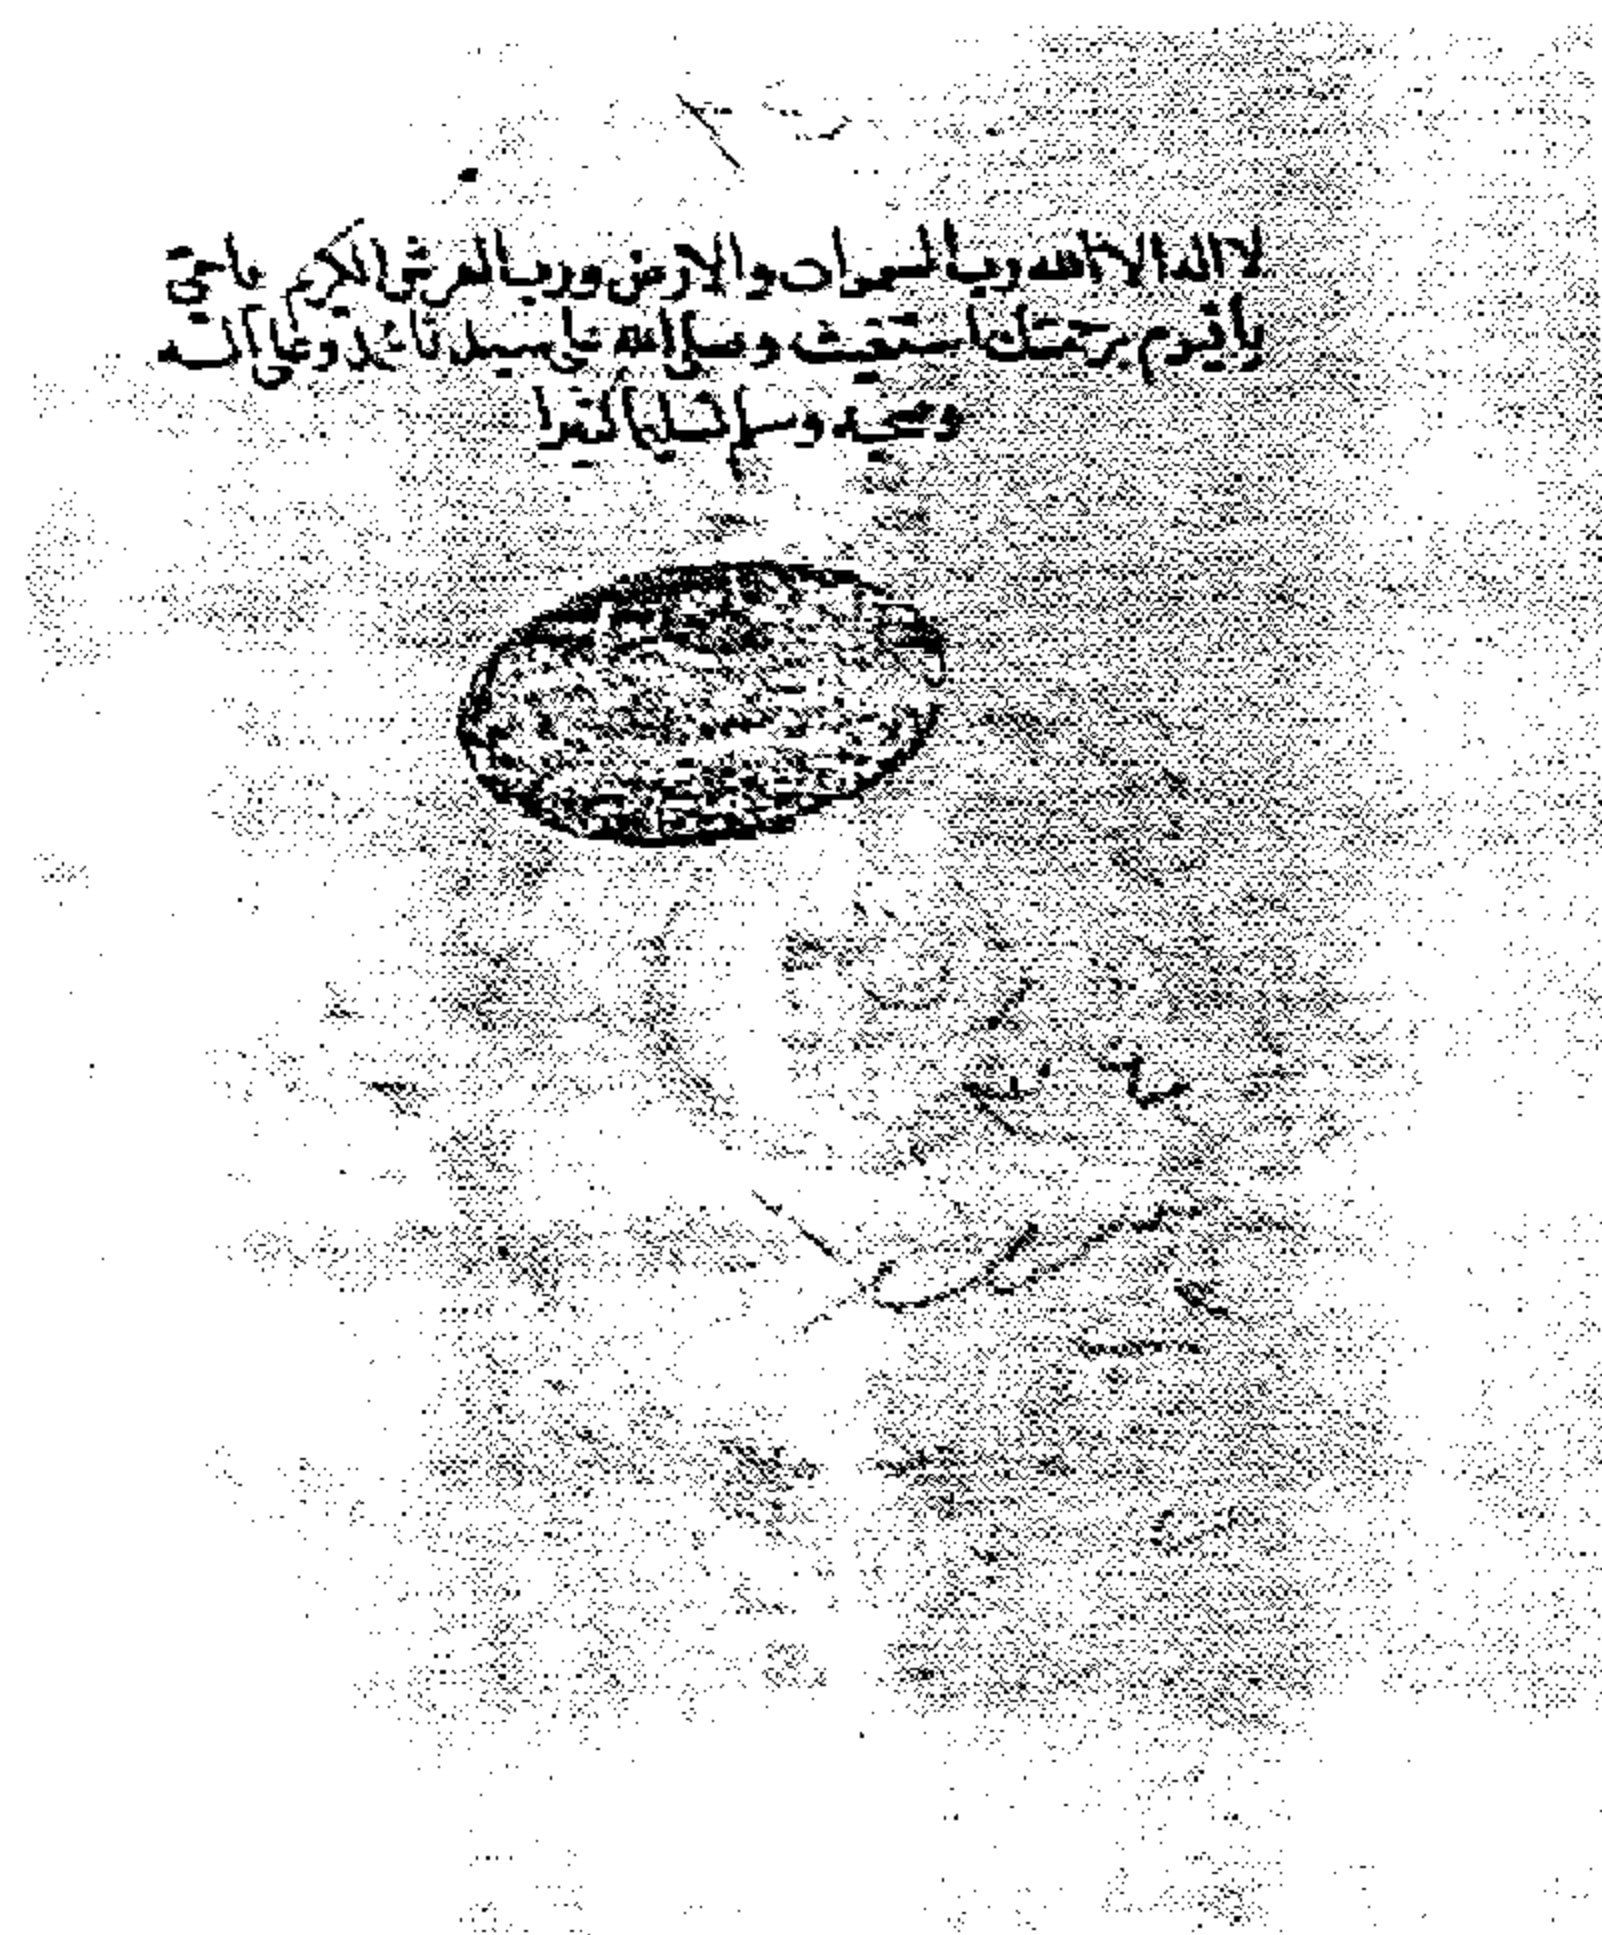 لا اله الا الله رب السموات والارض ورب العرش الكريم ياحي
ياقيوم برحمتك استغيث وصلى الله على سيدنا محمد وعلى آله
وصحبه وسلم تسليما كثيرا